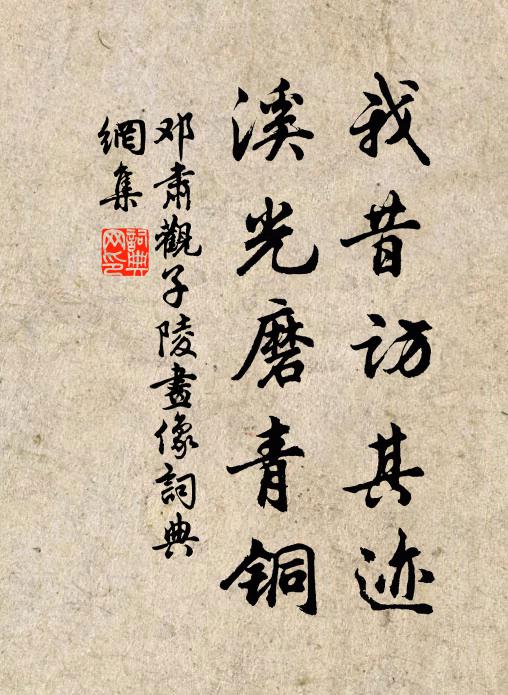 我昔访其迹
溪光磨青铜
邓肃觀子陵畫像詞典
網集
詞典
网印